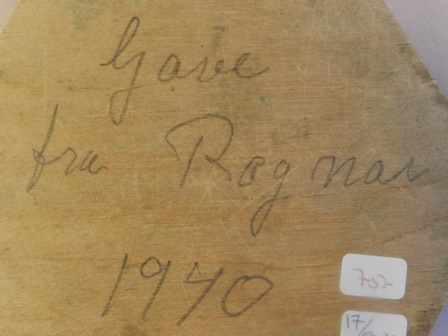 Gave
fra Ragnar
1940
702
17/